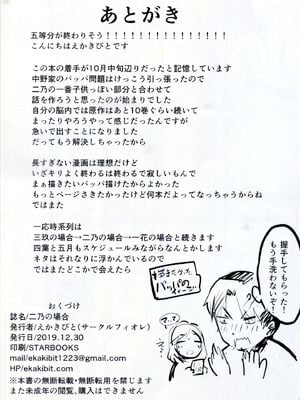 あとがき
五等分が終わりそう!!!!!!!!!!!!!!!
こんにちはえかきびとです
この本の着手が10月中旬辺りだったと記憶しています
中野家のパッパ問題はけっこう引っ張ったので
二乃の一番子供っぽい部分と合わせて
話を作ろうと思ったのが始まりでした
自分の脳内では原作はあと10巻ぐらい続いて
まったりやろうやって感じだったんですが
急いで出すことになりました
だってもう解決しちゃったから
長すぎない漫画は理想だけど
いざキリよく終わるは終わるで寂しいもんで
まぁ描きたいパッパ描けたからよかった
もっとページさきたかったけど何本だよってなっちゃうからね
ではまた
一応時系列は
三玖の場合→二乃の場合→一花の場合と続きます
四葉と五月もスケジュールみながらなんとかします
ネタはそれなりに浮かんでいるので
ではまたどこかで会えたら
握手してもらった!
もう手洗わないぞ!
おくづけ
誌名/二乃の場合
発行者/えかきびと(サークルフィオレ)
発行日/2019.12.30
印刷/STARBOOKS
mail/ekakibit1223@gmail.com
HP/ekakibit.com
※本書の無断転載・無断使用を禁じます
また未成年の閲覧、購入はできません